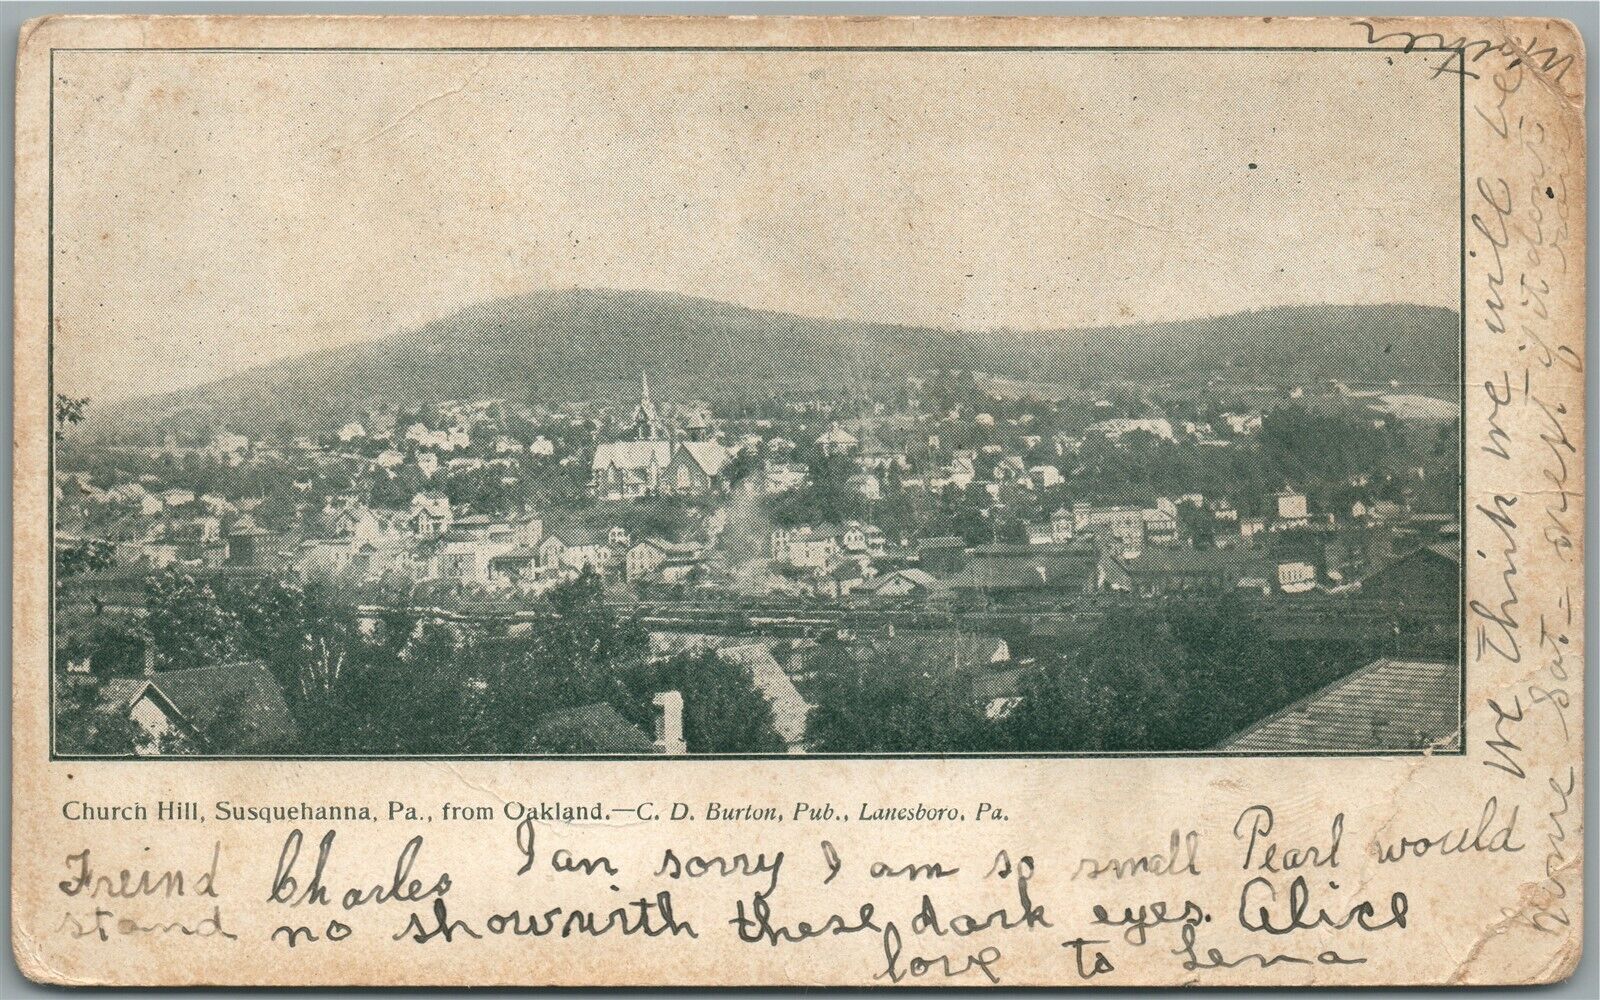 Church Hill, Susquehanna, Pa., from Oakland.—C. D. Burton, Pub., Lanesboro, Pa.
Freind Charles I an sorry I am so small Pearl would
stand no show with these dark eyes. Alice
love to Lena
We think we will be
home Sat- next if it dont rain